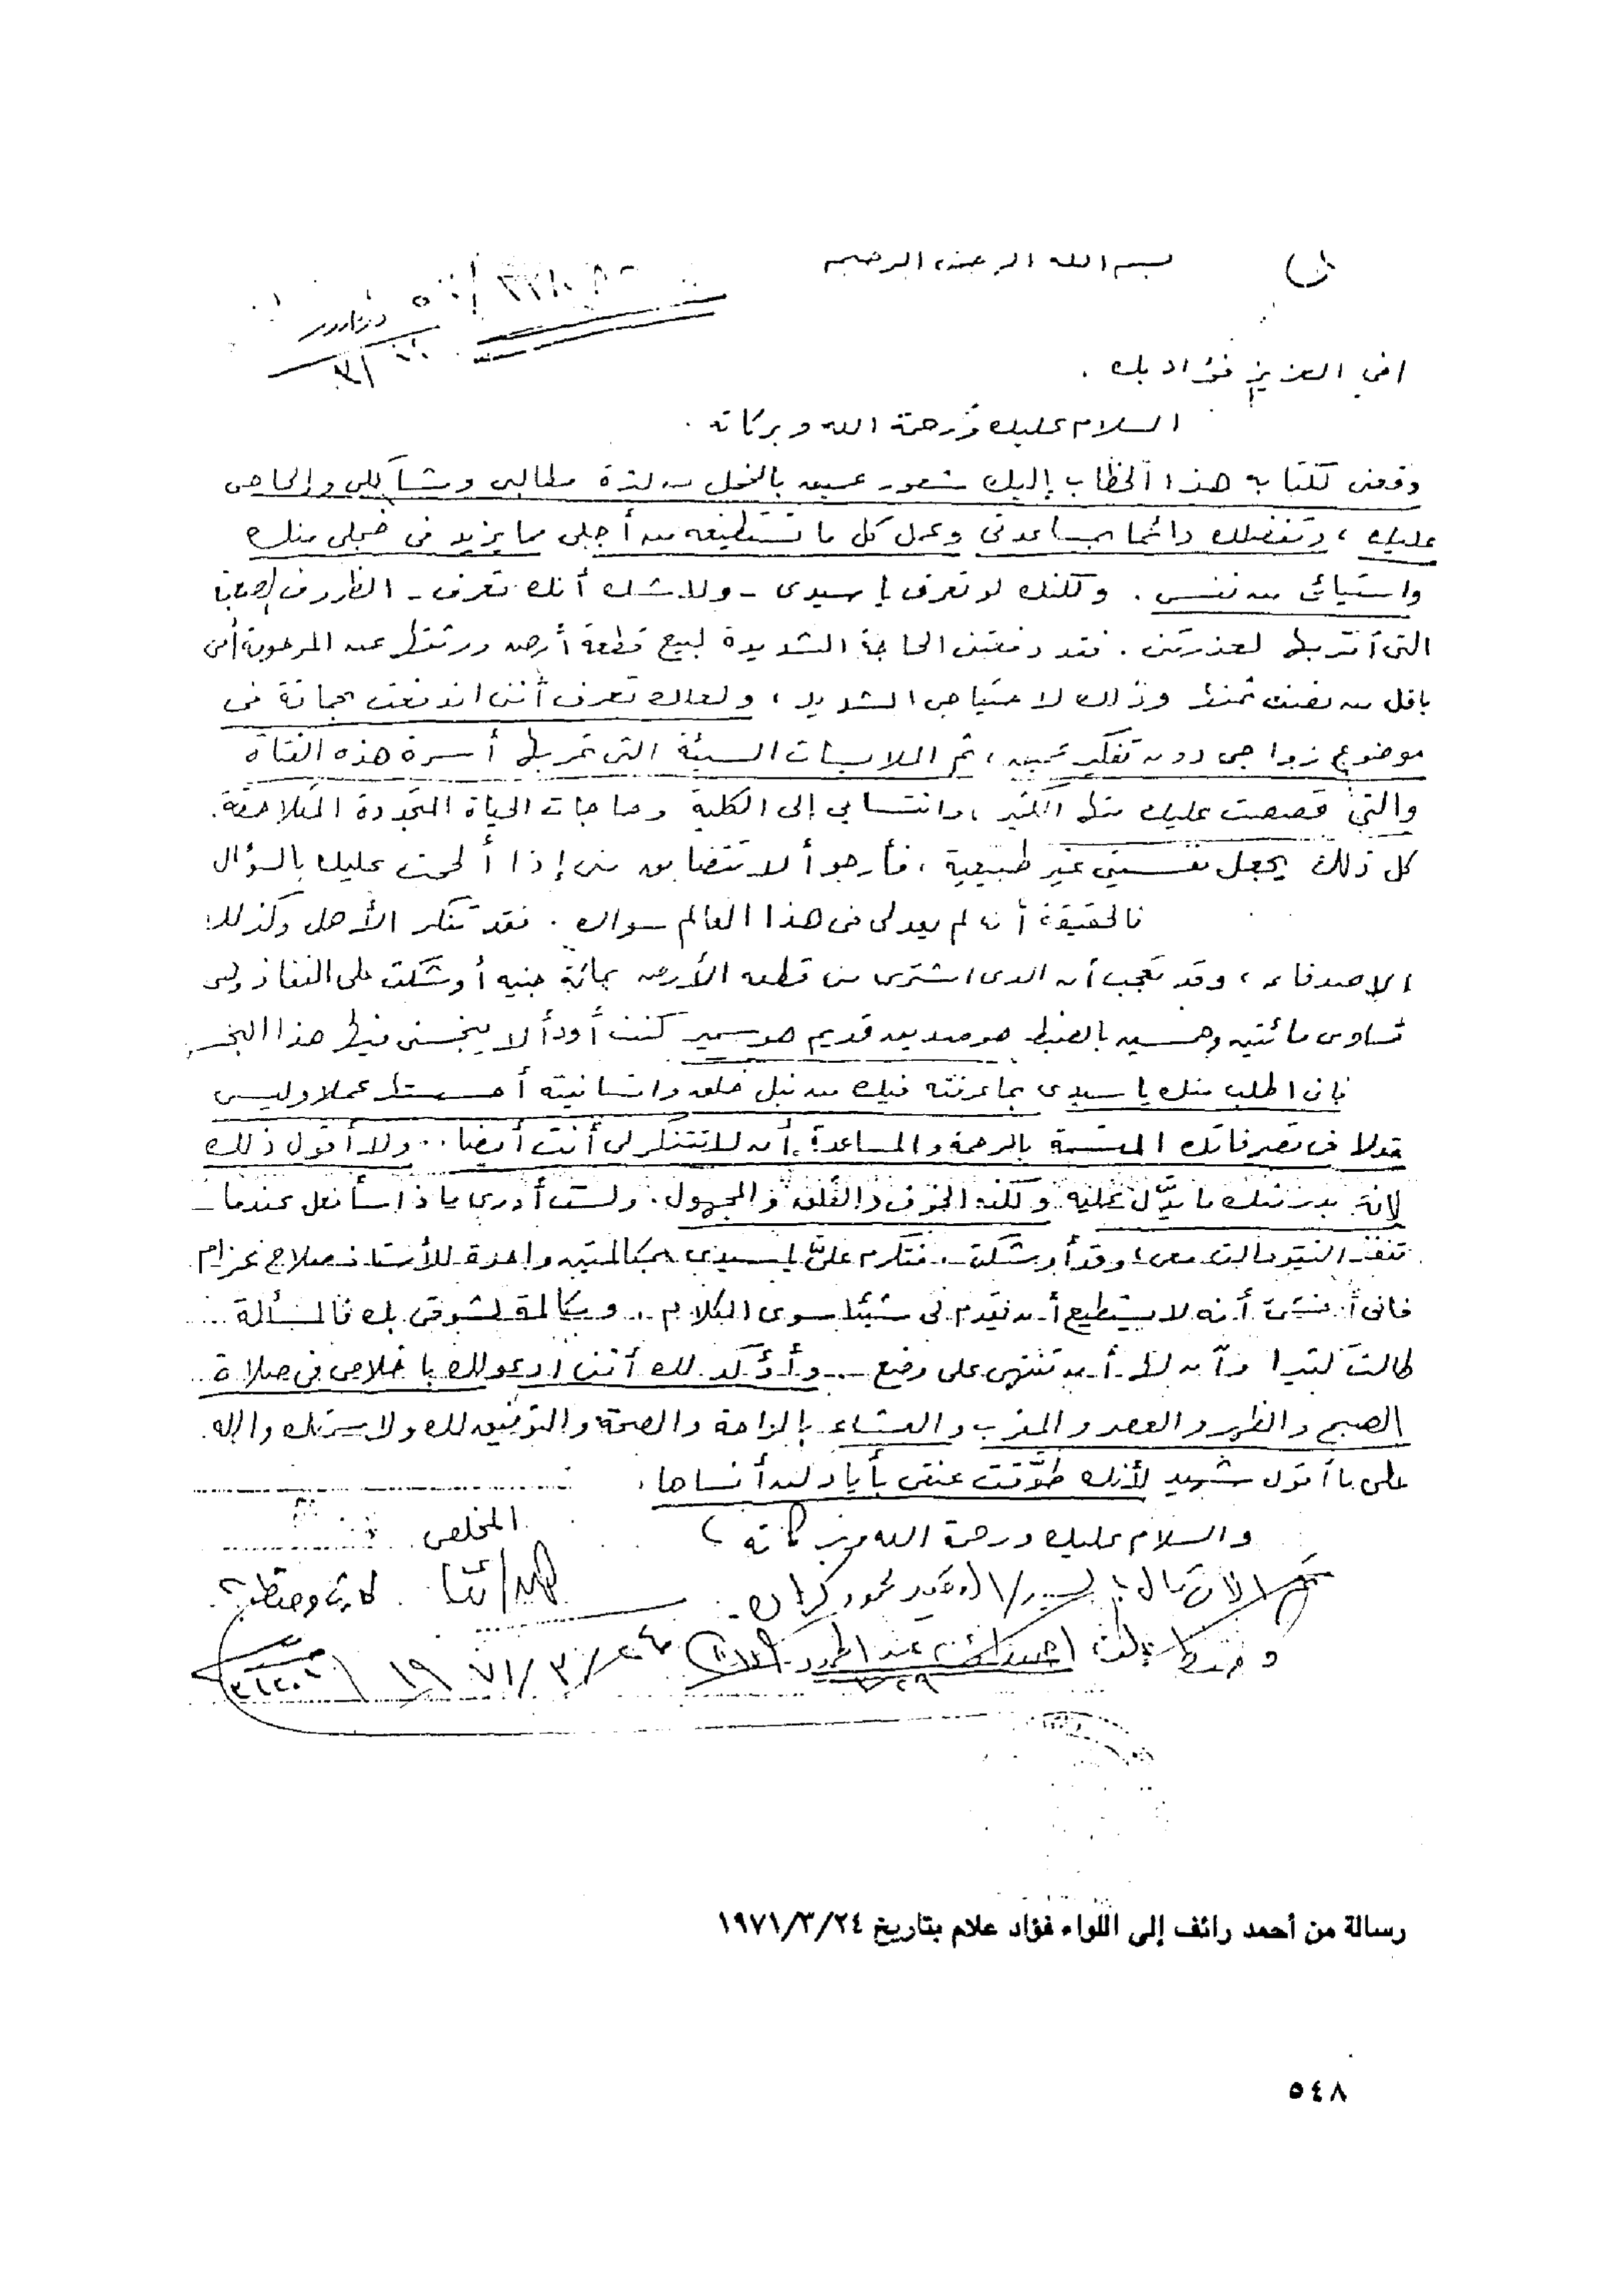 بسم الله الرحمن الرحيم
اخى العزيز فؤاد بك .
السلام عليك ورحمة الله وبركاته .
دفعنى لكتابة هذا الخطاب إليك شعور عميق بالخجل من كثرة مطالبى ومشاكلى وإلحاحى
عليك ، وتفضلك دائما بمساعدتى وعمل كل ما تستطيعه من أجلى مما يزيد فى خجلى منك
واستيائى من نفسى . ولكنك لو تعرف يا سيدى - ولا شك أنك تعرف - الظروف الصعبة
التى أمر بها لعذرتنى . فقد دفعتنى الحاجة الشديدة لبيع قطعة أرض ورثتها عن المرحومة أمى
بأقل من نصف ثمنها وذلك لاحتياجى الشديد ، ولعلك تعرف أننى اندفعت بحماقة فى
موضوع زواجى دون تفكير عميق ، ثم الملابسات السيئة التى تمر بها أسرة هذه الفتاة
والتى قصصت عليك منها الكثير ، وانتسابى إلى الكلية وحاجات الحياة المتجددة المتلاحقة .
كل ذلك يجعل نفسيتى غير طبيعية ، فأرجو ألا تتضايق منى إذا ألححت عليك بالسؤال
فالحقيقة أنه لم يعد لى فى هذا العالم سواك . فقد تنكر الأهل وكذلك
الاصدقاء ، وقد تعجب أن الذى اشترى منى قطعة الأرض بمائة جنيه أوشكت على النفاذ وهى
تساوى مائتين وخمسين بالضبط هو صديق قديم هو سمير كنت أود ألا يبخسنى فيها هذا البخس
فإنى اطلب منك يا سيدى بما عرفته فيك من نبل خلق وانسانية أحسستها عملا وليس
قولا فى تصرفاتك المتسمة بالرحمة والمساعدة أن لا تتنكر لى أنت أيضا .. ولا أقول ذلك
لانه بدر منك ما يدل عليه ولكنه الخوف والقلق والمجهول . ولست أدرى ماذا سأفعل عندما
تنفذ النقود التى معى ، وقد أوشكت . فتكرم علىّ يا سيدى بمكالمتين واحدة للأستاذ صلاح عزام
فانى أخشى أنه لا يستطيع أن يقدم لى شيئا سوى الكلام .. ومكالمة لشوقى بك فالمسألة
طالت كثيرا وآن لها أن تنتهى على وضع .. وأؤكد لك أننى ادعو لك باخلاص فى صلاة
الصبح والظهر والعصر والمغرب والعشاء بالراحة والصحة والتوفيق لك ولاسرتك والله
على ما أقول شهيد لأنك طوّقت عنقى بأياد لن أنساها .
والسلام عليك ورحمة الله وبركاته ،
المخلص
٢٤/٣/١٩٧١
رسالة من أحمد رائف إلى اللواء فؤاد علام بتاريخ ١٩٧١/٣/٢٤
٥٤٨